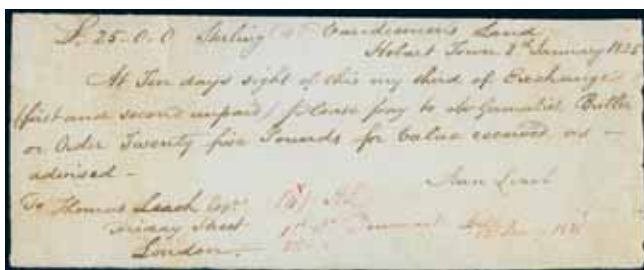 £. 25-0-0 Sterling Vandiemen's Land
Hobart Town 8th January
At Ten days sight of this my third of Exchange
(first and second unpaid) please pay to Gamaliel Butler
or Order Twenty five Pounds for Value received, as
advised -
Leach
To Thomas Leach Esqr
Friday Street
London